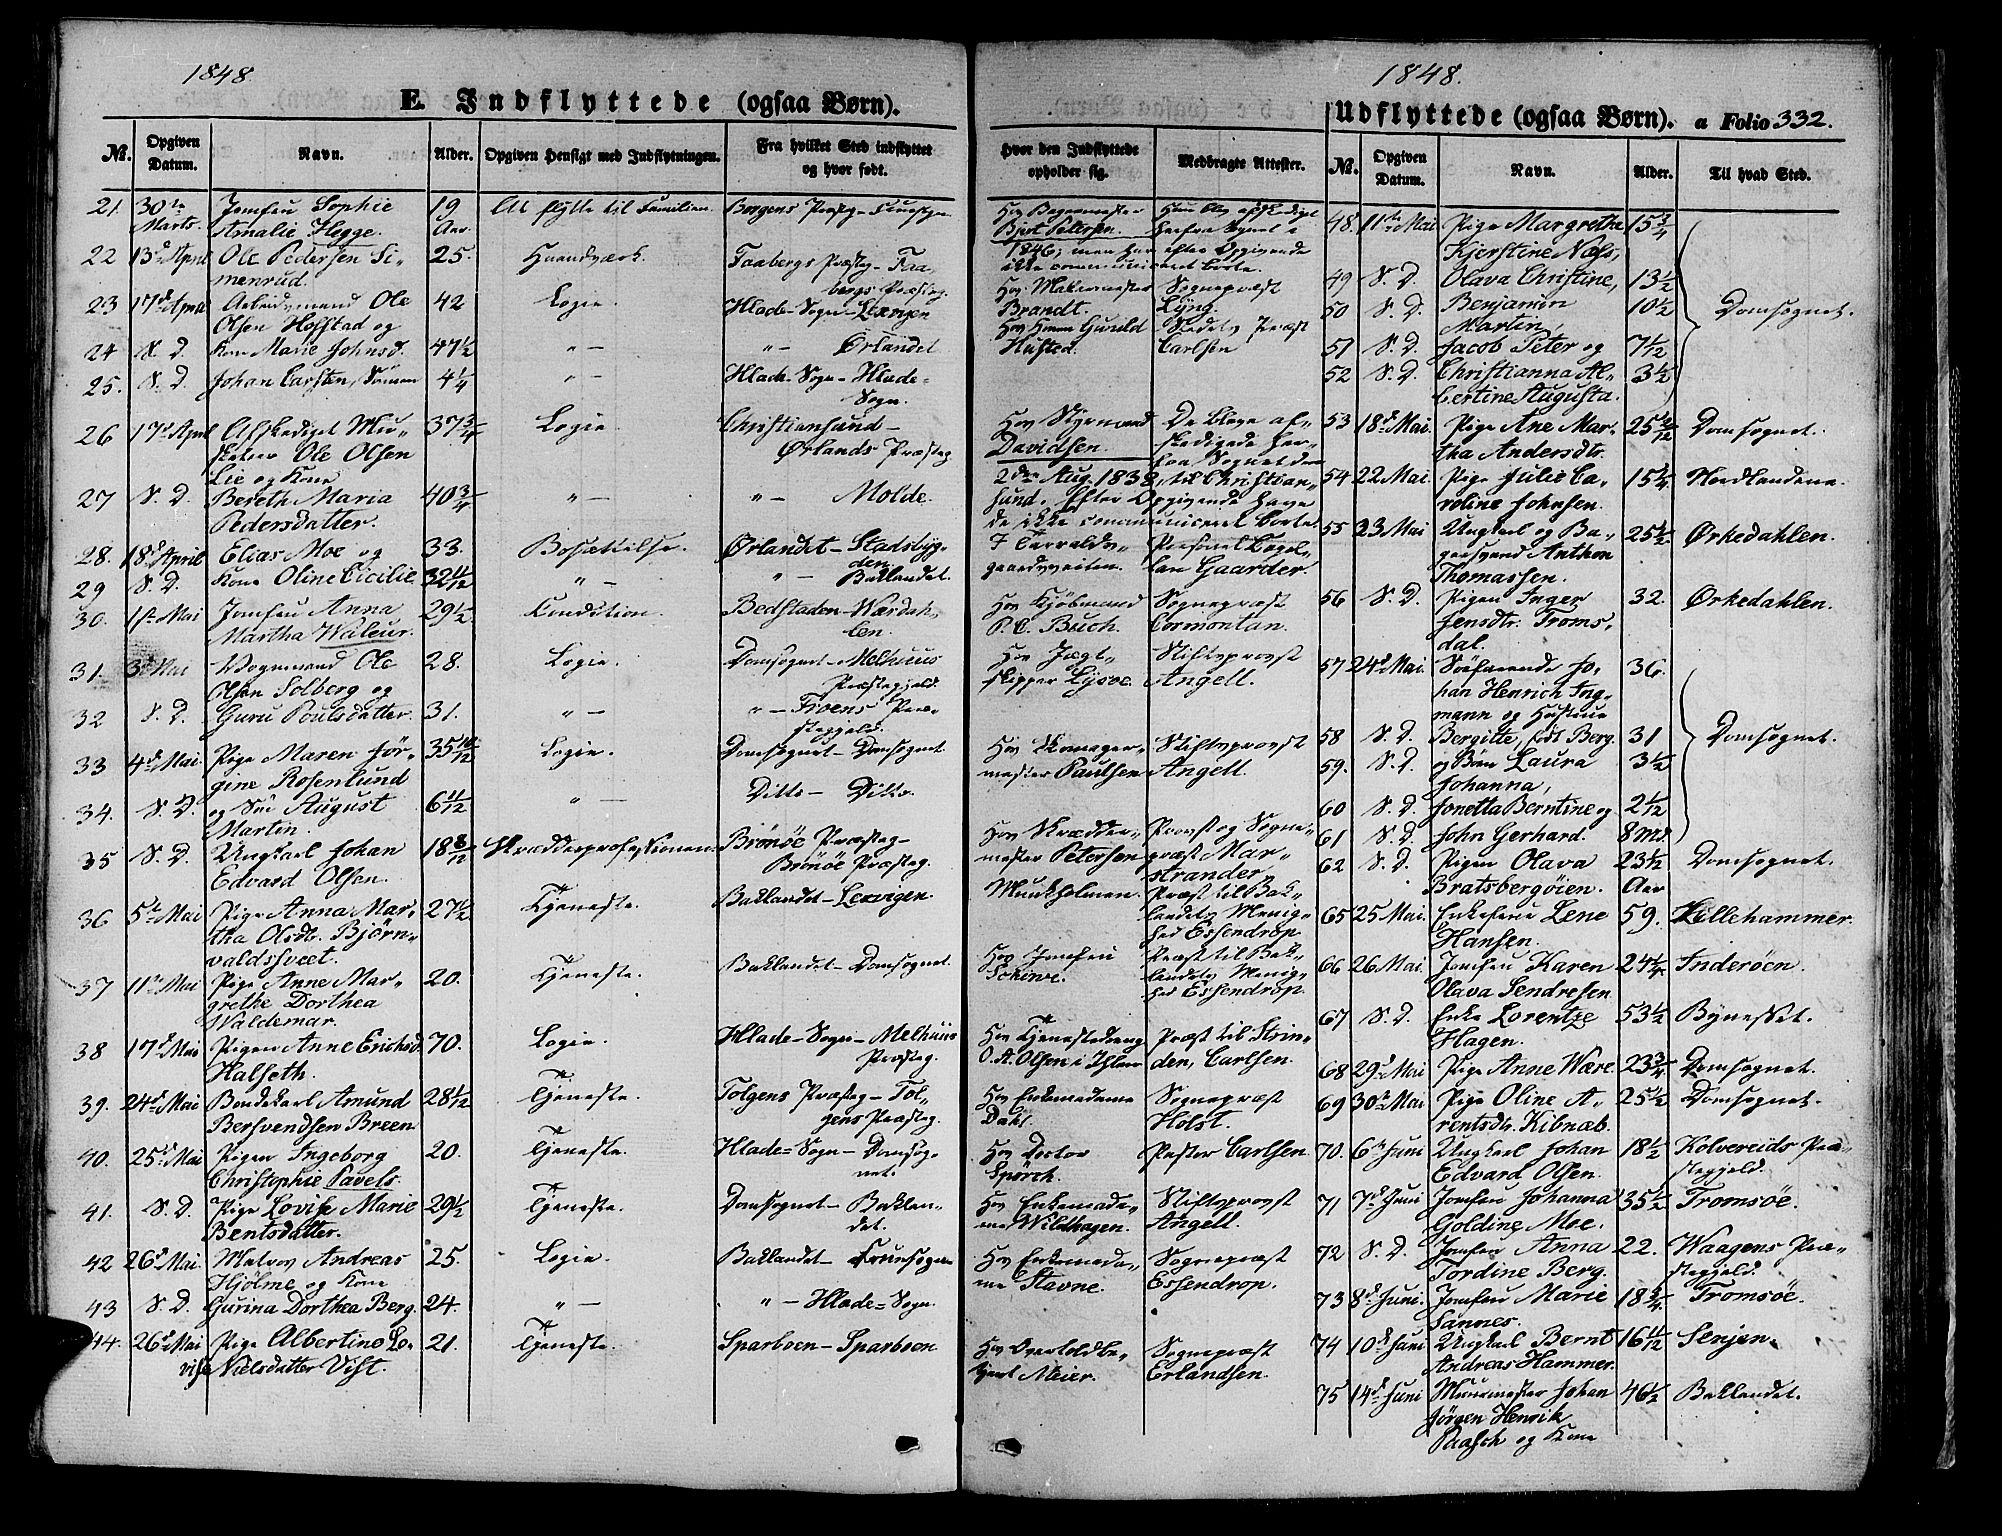 1848.
E. Indflyttede (ogsaa Børn).
No. Opgiven Datum. Navn. Alder. Opgiven Hensigt med Indflytningen. Fra hvilket Sted indflyttet og hvor født.
21. 30te Marts. Jomfru Sophie Amalie Hegge. 19 Aar At flytte til Familien. Borgens Præstg.
22 13de April Ole Pedersen Simenrud. 25. Haandværk. Faabergs Præstg - Faabergs Præstg.
23 17de April Arbeidsmand Ole Olsen Hofstad og 42 Logie. Hlade-Sogn - Lexvigen
24 S. D. Kone Marie Johnsd. 47 1/2 " — " — Ørlandet
25. S. D. Johan Carsten, Sønnen 4 1/4 " — Hlade-Sogn - Hlade-Sogn.
26 17de April Afskediget Musketeer Ole Olsen Lie og Kone 37 3/4 Logie Christiansund - Ørlands Præstg
27 S. D. Bereth Maria Pedersdatter. 40 3/4 " — " — Molde.
28. 18de April Elias Moe og 33. Bosættelse. Ørlandet - Stadsbygden.
29 S. D. Kone Oline Cicilie 32 11/12 " — " — Baklandet.
30. 1ste Mai Jomfru Anna Martha Waleur. 29 1/2 Condition. Bedstaden - Værdalen.
31. 3die Mai Vognmand Ole Olsen Solberg og 28. Logie. Domsognet - Melhuus Præstegjeld.
32 S. D. Guru Poulsdatter. 31. " — " — Præstegjeld.
33 4de Mai. Pige Maren Jørgine Rosenlund 35 10/12 Logie. Domsognet - Domsognet.
34. S. D. og Søn August Martin. 6 11/12 " — Ditto - Ditto.
35 S. D. Ungkarl Johan Edvard Olsen. 18 8/12 Skrædderprofessionen. Brönöe Præstg - Brönöe Præstg.
36 5te Mai Pige Anna Martha Olsdtr. Bjørnvaldssveet. 27 1/2 Tjeneste. Baklandet - Lexvigen.
37 11te Mai Pige Anne Margrethe Dorthea Waldemar. 20. Tjeneste. Baklandet - Domsognet.
38 17de Mai Pigen Anne Erichsd. Halseth. 70. Logie. Hlade-Sogn - Melhuus Præstg.
39. 24de Mai Bondekarl Amund Bersvendsen Breen 28 1/2 Tjeneste. Tolgens Præstg - Tolgens Præstg.
40. 25de Mai Pigen Ingeborg Christophie Pavels. 20. Tjeneste. Hlade-Sogn - Domsognet.
41. S. D. Pige Lovise Marie Bentsdatter. 29 1/2 Tjeneste. Domsognet - Baklandet.
42 26de Mai. Matros Andreas Hjölme og Kone 25. Logie. Baklandet - Fruesogn
43 S. D. Gurina Dorthea Berg. 24. " — " — Hlade-Sogn.
44. 26de Mai Pige Albertine Lovise Nielsdatter Vist. 21. Tjeneste. Sparboen - Sparboen
1848.
Udflyttede (ogsaa Børn). a Folio 332.
Hvor den Indflyttede opholder sig. Medbragte Attester. No. Opgiven Datum. Navn. Alder. Til hvad Sted.
Hos Bagermester Bjert Petersen.
1846, men har efter Opgivende
ikke communiceret borte.
Hos Malermester Brandt. Sognepræst Lyng.
Hos Husted. Stedets Præst Carlsen
Hos Styrmand Davidsen. De bleve afskedigede herfra Sognet den
2den Aug. 1838, til Christiansund. Efter Opgivende have
de ikke communiceret borte.
Personel Capellan Gaarder.
Hos Kjøbmand P. C. Buch. Sognepræst Cormontan.
Hos Jægtskipper Lysøe. Stiftsprovst Angell.
Hos Skomagermester Paulsen Stiftsprovst Angell.
Hos Skræddermester Petersen Provst og Sognepræst Marstrander.
Munkholmen. Præst til Baklandets Menighed Essendrop.
Hos Jomfru Præst til Baklandets Menighed Essendrop.
Hos Tjenestedreng O. A. Olsen i Ihlen Præst til Strinden, Carlsen.
Hos Enkemadame Dahl. Sognepræst Holst.
Hos Doctor Spörck. Pastor Carlsen
Hos Enkemadame Wildhagen. Stiftsprovst Angell.
Hos Enkemadame Stavne. Sognepræst Essendrop.
Hos Overtoldbetjent Meier. Sognepræst Erlandsen.
48. 11te Mai Pige Margrethe Kjerstine Næss, 15 3/4
49 S. D. Olava Christine, 13 1/2
50 S. D. Benjamin Martin, 10 1/2 Domsognet.
51 S. D. Jacob Peter og 7 1/12
52 S. D. Christianna Albertine Augusta. 3 1/2
53 18de Mai. Pige Ane Martha Andersdtr. 25 Domsognet.
54 22 Mai. Pige Julie Caroline Johnsen. 15 3/4 Nordlandene.
55 23 Mai Ungkarl og Bagersvend Anthon Thomassen. 25 1/2 Ørkedahlen.
56 S. D. Pigen Inger Jensdtr. Tromsdal. 32. Ørkedahlen.
57 24de Mai. Johan Henrich Ingmann og Hustrue 36.
58 S. D. Bergitte, født Berg. 31 Domsognet.
59. S. D. og Børn Laura Johanna, 3 1/2
60 S. D. Jonetta Berntine og 2 1/12
61 S. D. John Gerhard. 8 Md.
62 S. D. Pigen Olava Bratsbergöien. 23 1/2 Aar Domsognet.
65 25 Mai. Enkefrue Lene Hansen. 59. Lillehammer.
66 26 Mai. Jomfru Karen Olava Sendresen 24 1/4 Inderöen.
67 S. D. Enke Lorentze Hagen. 53 1/2 Bynesset.
68 29de Mai Pige Anne Wære. 23 3/4 Domsognet.
69 30te Mai Pige Oline Arentsdtr. Kibnæb. 25 1/2 Domsognet.
70. 6te Juni Ungkarl Johan Edvard Olsen. 18 1/2 Kolvereids Præstegjeld.
71 7de Juni Jomfru Johanna Goldine Moe. 35 1/2 Tromsøe.
72 S. D. Jomfru Anna Tordine Berg. 22. Waagens Præstegjeld.
73 8de Juni. Jomfru Marie Sannes. 18 3/4 Tromsøe.
74 10de Juni Ungkarl Bernt Andreas Hammer. 16 11/12 Senjen.
75 14de Juni Muurmester Johan Jørgen Henrik Paasch og Kone 46 1/2 Baklandet.